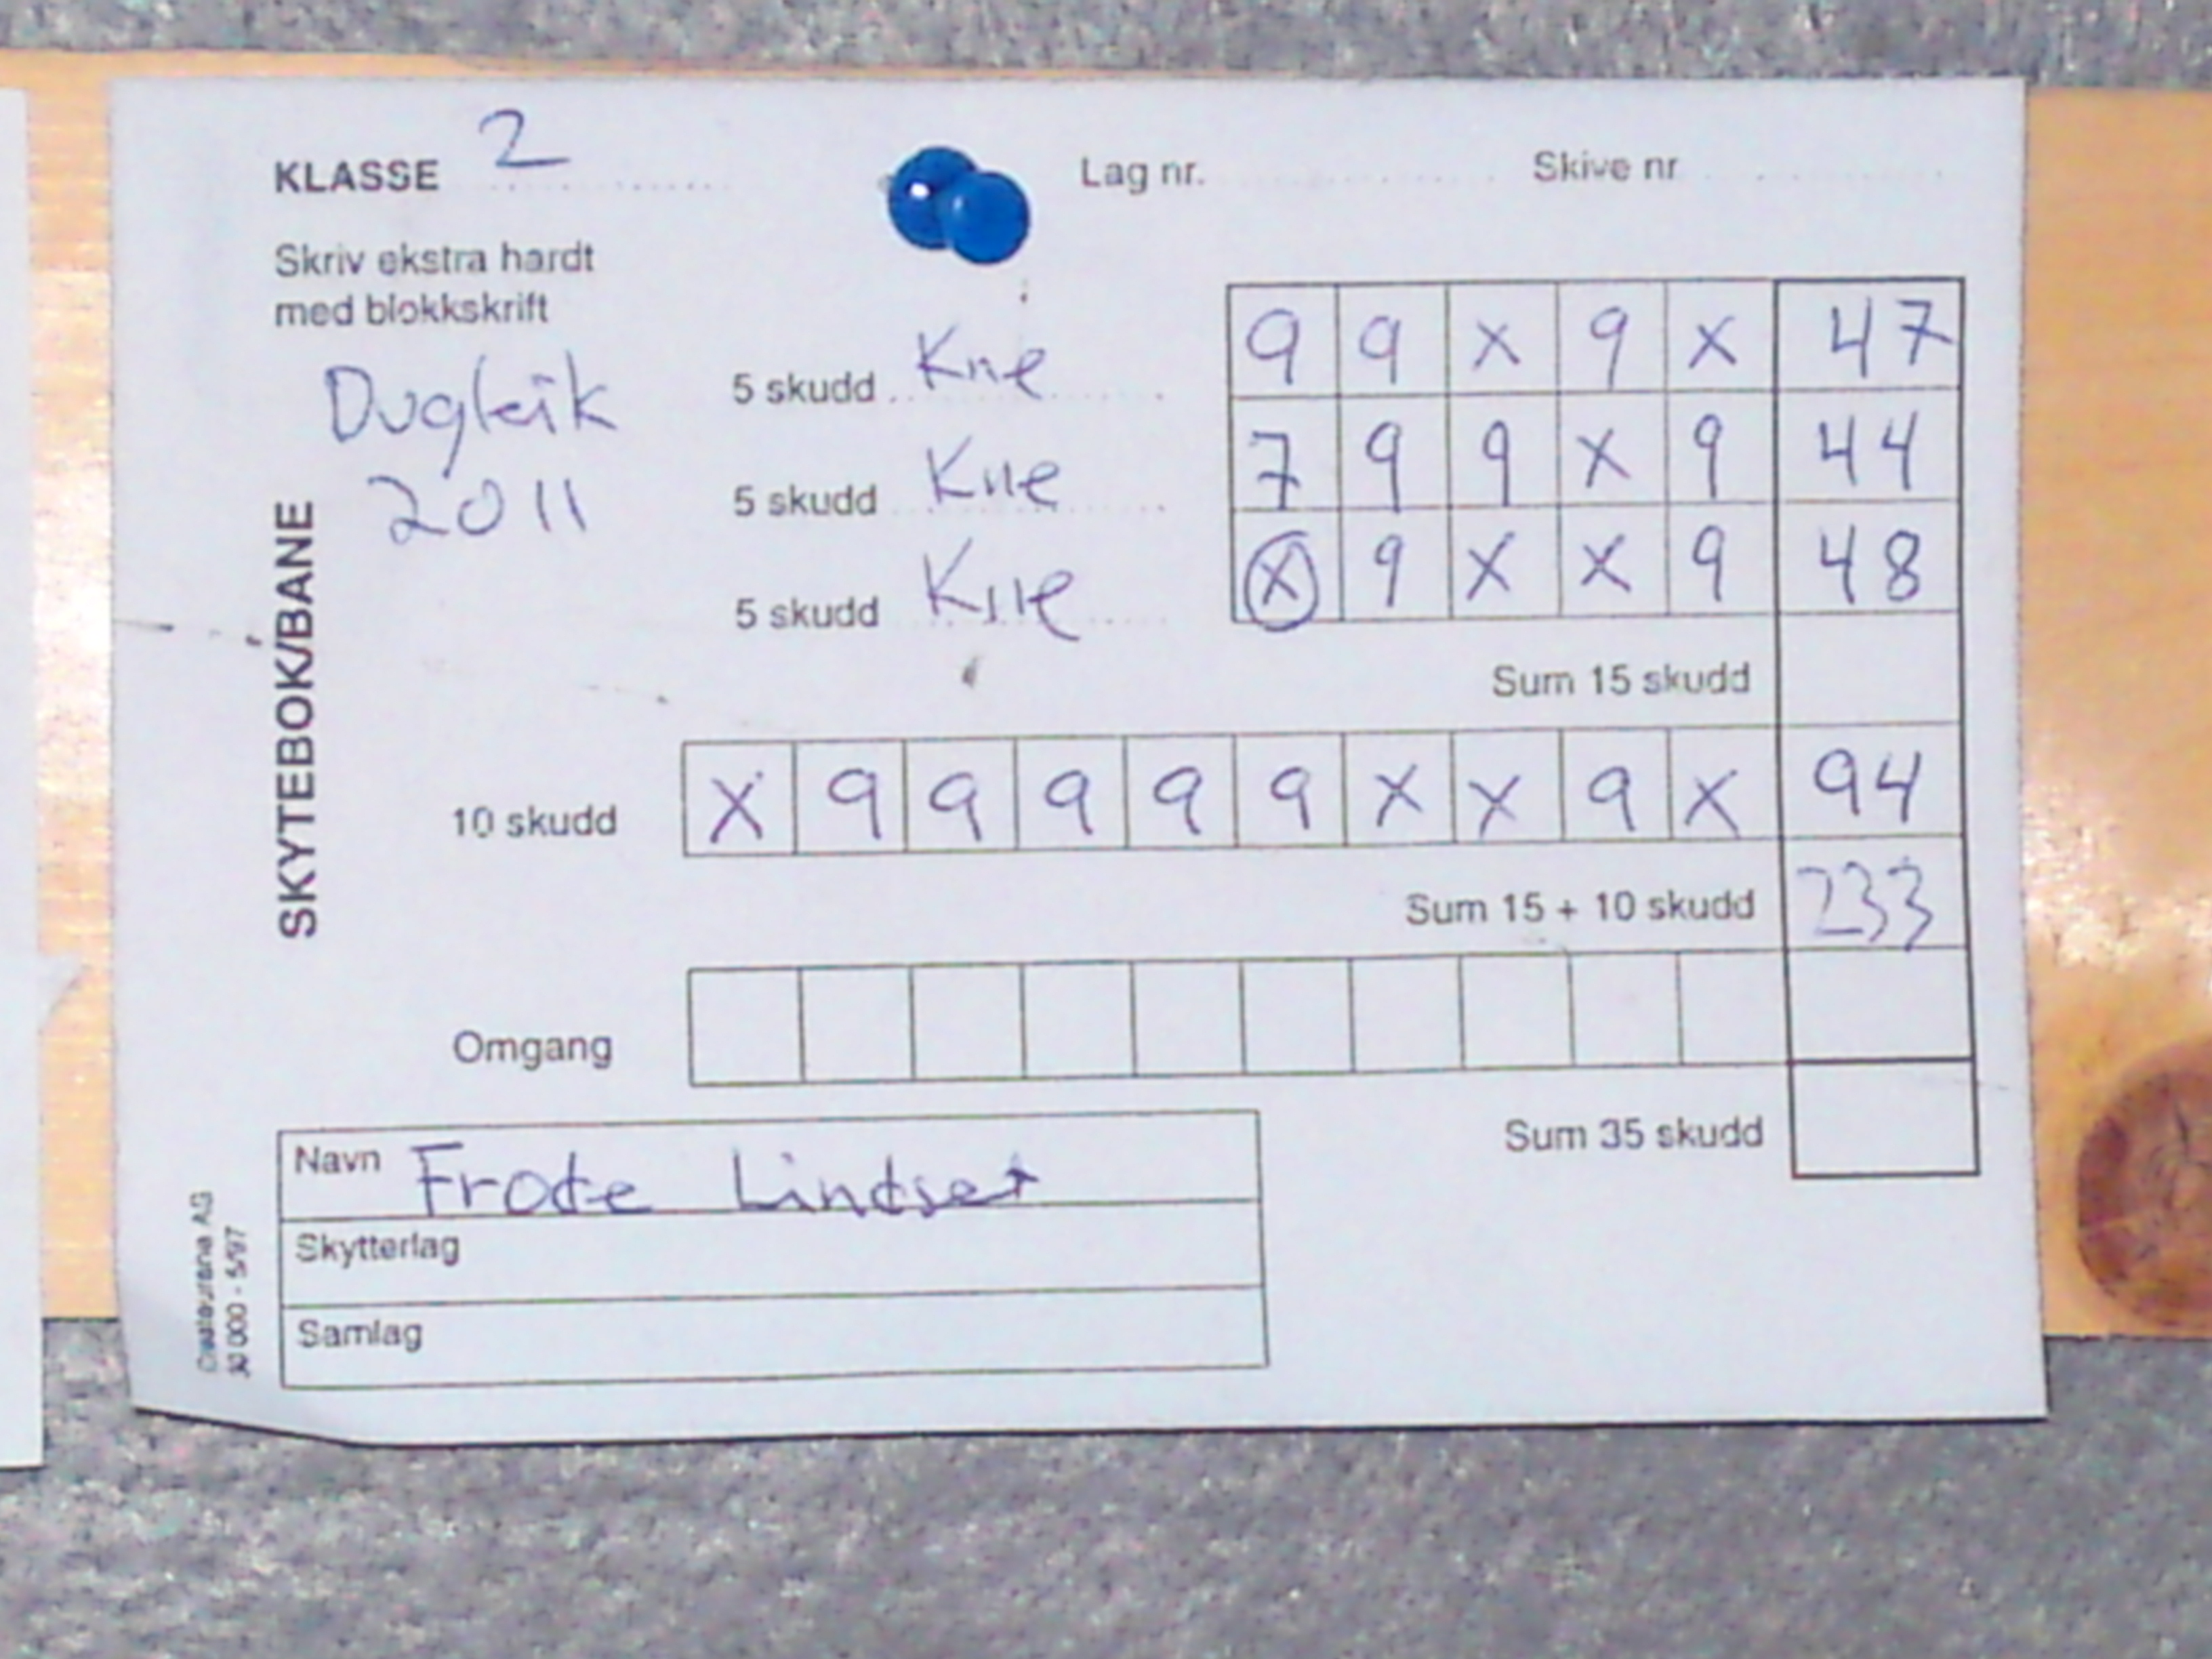 KLASSE 2 Lag nr. Skive nr
Skriv ekstra hardt
med blokkskrift
Dugleik
2011
SKYTEBOK/BANE
5 skudd Kne 9 9 X 9 X 47
5 skudd Kne 7 9 9 X 9 44
5 skudd Kne X 9 X X 9 48
Sum 15 skudd
10 skudd X 9 9 9 9 9 X X 9 X 94
Sum 15 + 10 skudd 233
Omgang
Sum 35 skudd
Navn Frode Lindset
Skytterlag
Samlag
30 000 - 5/97